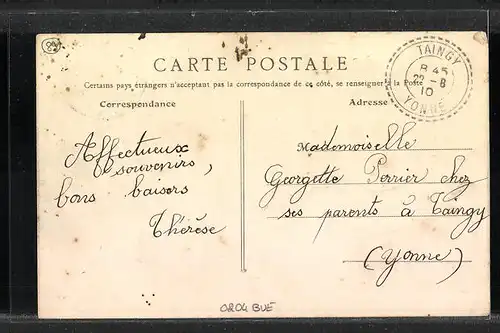 CARTE POSTALE
Certains pays étrangers n'acceptant pas la correspondance de ce côté, se renseigner à la Poste
Correspondance
Adresse
TAINGY
8 45
22 - 8
10
YONNE
Affectueux
souvenirs,
bons baisers
Thérèse
Mademoiselle
Georgette Perrier chez
ses parents à Taingy
(Yonne)
0204 BUE